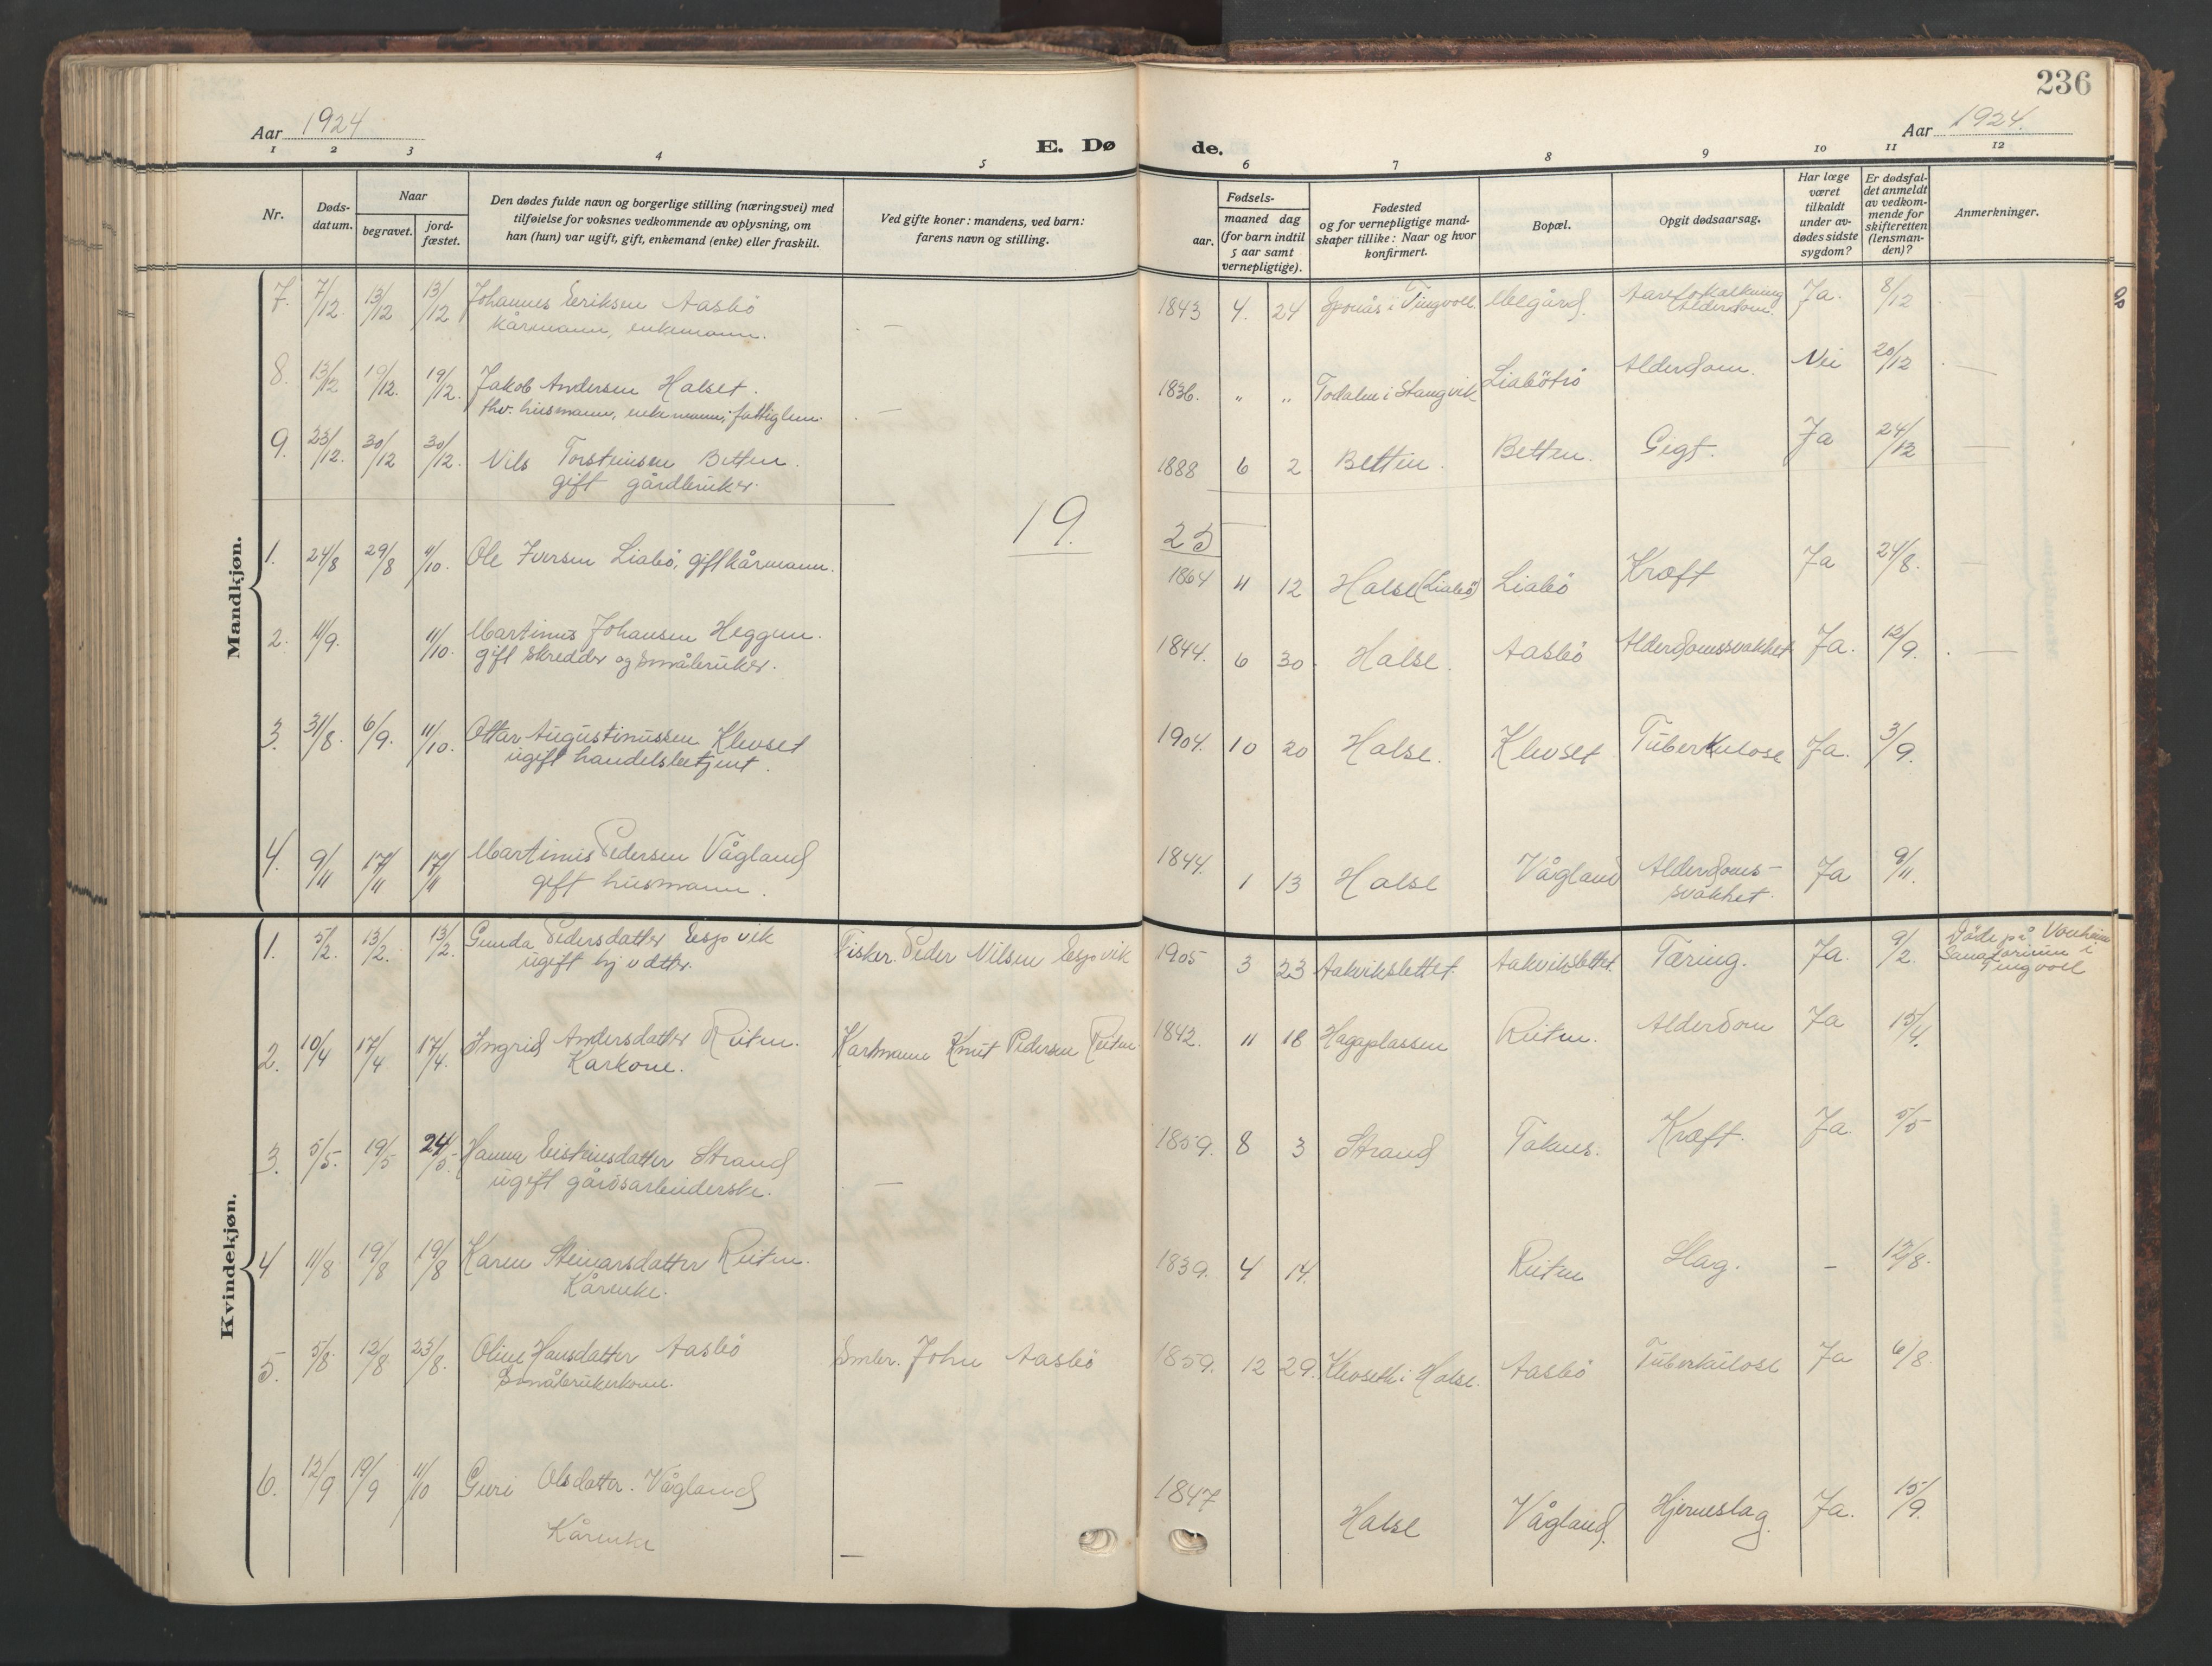 236
Aar 1924
E. Dø de.
Aar 1924.
1 2 3 4 5 6 7 8 9 10 11 12
Nr.
Døds-
datum.
Naar
begravet.
jord-
fæstet.
Den dødes fulde navn og borgerlige stilling (næringsvei) med
tilføielse for voksnes vedkommende av oplysning, om
han (hun) var ugift, gift, enkemand (enke) eller fraskilt.
Ved gifte koner: mandens, ved barn:
farens navn og stilling.
Fødsels-
aar.
maaned dag
(for barn indtil
5 aar samt
vernepligtige).
Fødested
og for vernepligtige mand-
skaper tillike: Naar og hvor
konfirmert.
Bopæl.
Opgit dødsaarsag.
Har læge
været
tilkaldt
under av-
dødes sidste
sygdom?
Er dødsfal-
det anmeldt
av vedkom-
mende for
skifteretten
(lensman-
den)?
Anmerkninger.
Mandkjøn.
7. 7/12. 13/12 13/12 Johannes Eeriksen Aasbö 1843 4. 24 i Tingvoll. Melgård. Aareforkalkning Ja. 8/12
Kårmann, enkemann. — Alderdom.
8. 13/12 19/12. 19/12. Jakob Andersen Halset. 1836. " " Todalen i Stangvik Liabötrö Alderdom. Nei 20/12 —
fhv. husmann, enkemann, fattiglem. —
9. 23/12. 30/12 30/12. Nils Torsteinsen Betten. 1888 6 2 Betten. Betten. Gigt. Ja 24/12 —
gift gårdbruker.
19. 25
1. 24/8 29/8 11/10. Ole Iversen Liabö, gift kårmann. 1864 11 12 Halse (Liabö) Liabö Kræft Ja 24/8. —
2. 11/9. 11/10. Martinus Johansen Heggem. 1844. 6 30. Halse. Aasbö Alderdomssvakhet Ja. 12/9. —
gift skredder og småbruker.
3. 31/8. 6/9. 11/10. Ottar Augustinussen Klevset 1904. 10 20 Halse. Klevset Tuberkulose Ja. 3/9.
ugift handelsbetjent.
4. 9/11 17/11 17/11 Martinus Pedersen Vågland 1844. 1 13 Halse Vågland Alderdoms- Ja 9/11.
gift husmann. svakhet.
Kvindekjøn.
1. 5/2. 13/2. 13/2. Gunda Pedersdatter Espvik Fisker. Peder Nilsen Espvik 1905 3 23 Aakvikslettet Aakvikslettet. Tæring. Ja. 9/2. Döde på Vonheim
ugift hj. v dtter. Sanatorium i
Tingvoll
2. 10/4 17/4 17/4. Ingrid Andersdatter Reiten. Karmann Knut Pedersen Reiten 1842. 11 18 Hagaplassen Reiten. Alderdom Ja 15/4.
Karkone.
3. 5/5. 19/5 24/5. Hanna Eisteinsdatter Strand 1859. 8 3 Strand Taknes. Kræft. Ja 5/5
ugift gårdsarbeiderske. —
4 11/8 19/8 19/8 Karen Steinarsdatter Reiten. 1839. 4 14. Reiten Slag. - 12/8.
Kårenke.
5. 5/8. 12/8 23/8. Oline Hansdatter Aasbö Smbr. John Aasbö 1859. 12 29. Klevseth i Halse. Aasbö Tuberkulose Ja 6/8
Småbrukerkone.
6. 12/9 19/9 11/10 Guri Olsdatter. Vågland 1847 Halse Vågland. Hjerneslag. Ja. 15/9.
Kårenke —